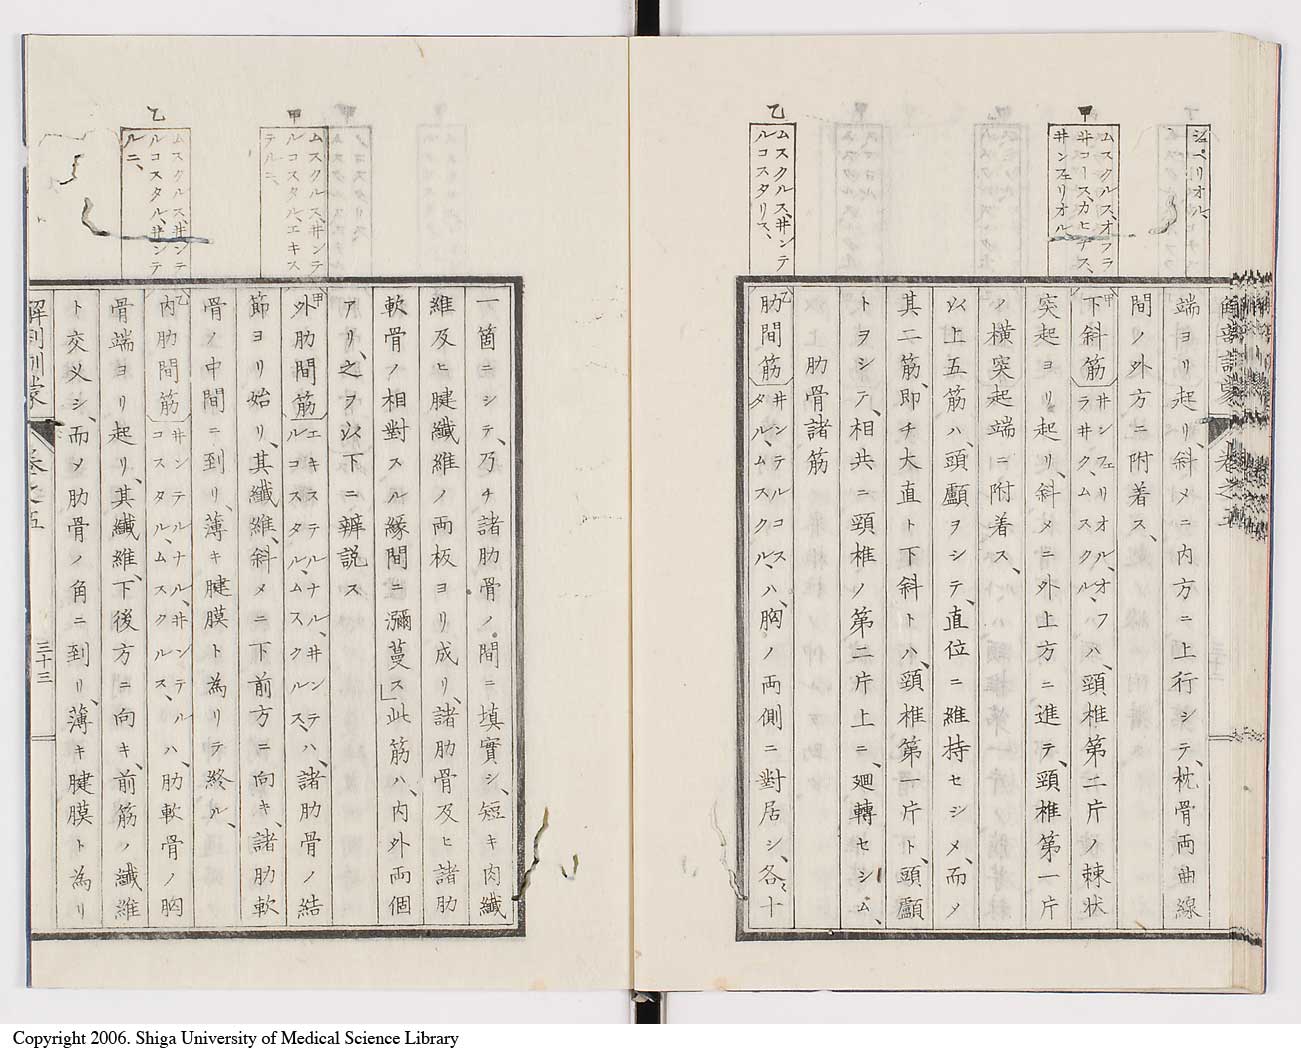 シュペリオル、
甲
ムスクルス、オフラ
井コース、カヒチス、
井ンフェリオル
乙
ムスクルス、井ンテ
ルコスタリス、
解剖訓蒙 巻之五
端ヨリ起リ、斜メニ内方ニ上行シテ、枕骨両曲線
間ノ外方ニ附着ス、
甲下斜筋 井ンフェリオル、オフラ井ク、ムスクル、ハ、頸椎第二片ノ棘状
突起ヨリ起リ、斜メニ外上方ニ進テ、頸椎第一片
ノ横突起端ニ附着ス、
以上五筋ハ、頭顱ヲシテ、直位ニ維持セシメ、而ノ
其二筋、即チ大直ト下斜トハ、頸椎第一片ト、頭顱
トヲシテ、相共ニ頸椎ノ第二片上ニ、廻轉セシム、
肋骨諸筋
乙肋間筋 井ンテルコスタル、ムスクル、ハ、胸ノ両側ニ對居シ、各〻十
甲
ムスクルス、井ンテ
ルコスタル、エキス
テルニ、
乙
ムスクルス、井ンテ
ルコスタル、井ンテ
ルニ、
一箇ニシテ、乃チ諸肋骨ノ間ニ填實シ、短キ肉纎
維及ヒ腱纎維ノ両板ヨリ成リ、諸肋骨及ヒ諸肋
軟骨ノ相對スル縁間ニ瀰蔓ス」此筋ハ、内外両個
アリ、之ヲ以下ニ辨説ス
甲外肋間筋 エキステルナル、井ンテルコスタル、ムスクルス、ハ、諸肋骨ノ結
節ヨリ始リ、其纎維、斜メニ下前方ニ向キ、諸肋軟
骨ノ中間ニ到リ、薄キ腱膜ト為リテ終ル、
乙内肋間筋 井ンテルナル、井ンテルコスタル、ムスクルス、ハ、肋軟骨ノ胸
骨端ヨリ起リ、其纎維、下後方ニ向キ、前筋ノ纎維
ト交叉シ、而ノ肋骨ノ角ニ到リ、薄キ腱膜ト為リ
解剖訓蒙 巻之五 三十三
Copyright 2006. Shiga University of Medical Science Library